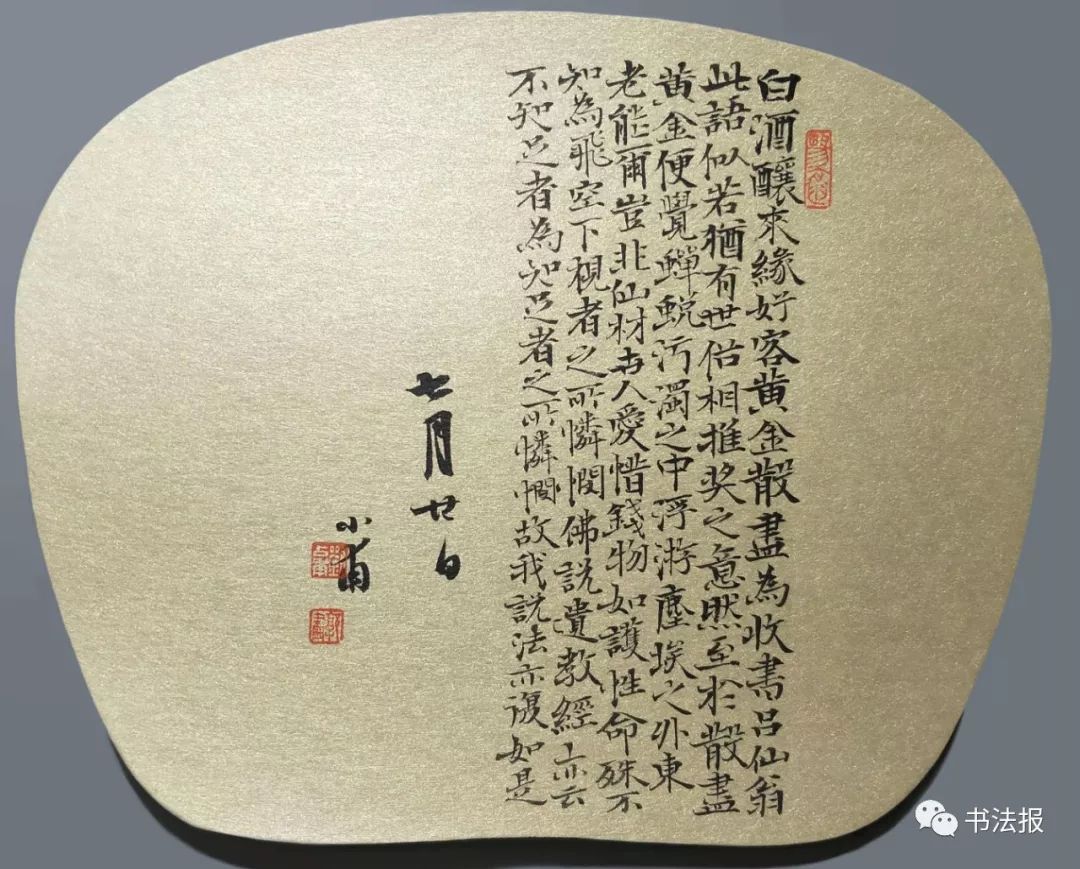 白酒釀來緣好客黄金散盡為收書吕仙翁
此語似若猶有世俗相推奖之意然至於散盡
黄金便覺蟬蜕污濁之中浮游塵埃之外東
老能爾豈非仙材世人愛惜錢物如護性命殊不
知為飛空下視者之所憐憫佛說遺教經亦云
不知足者為知足者之所憐憫故我説法亦復如是
七月廿日
小甫
书法报